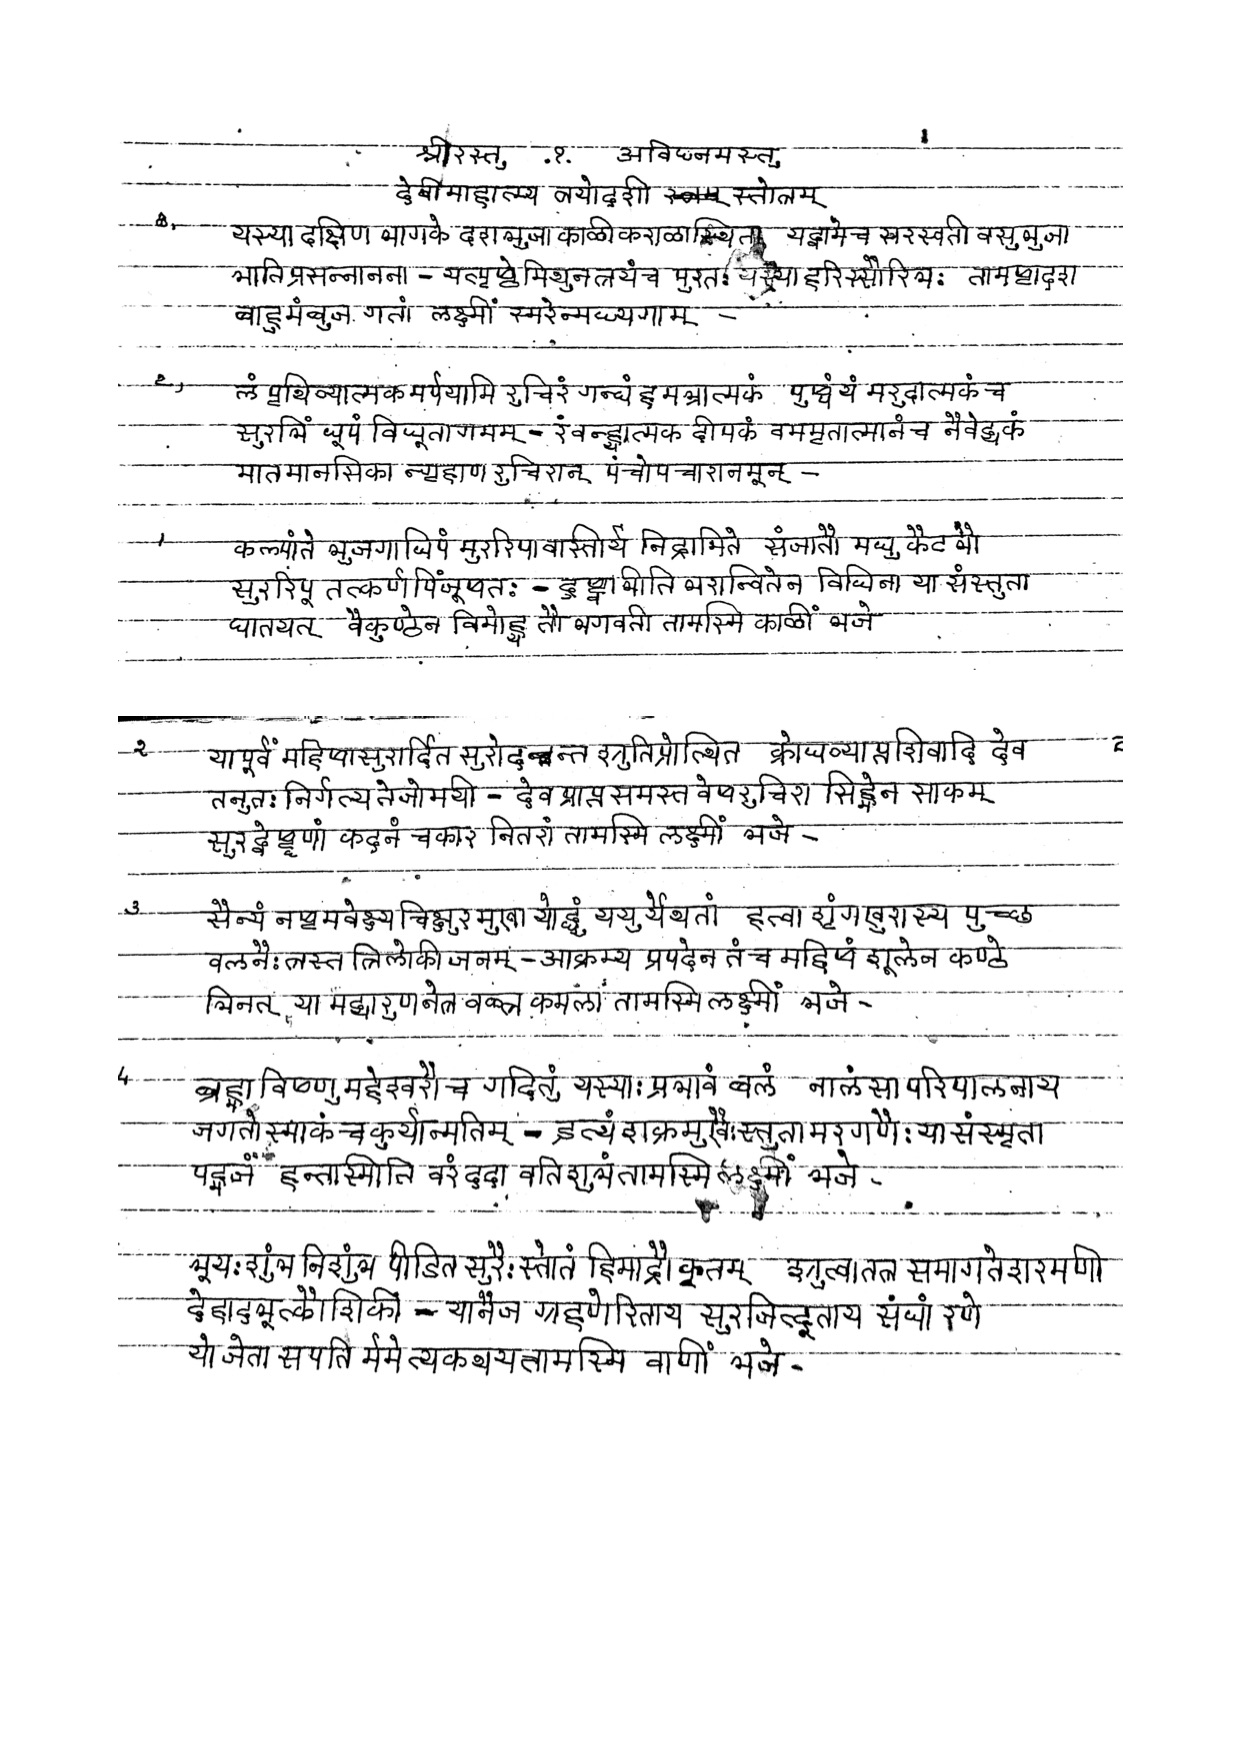 1
श्रीरस्तु .१. अविघ्नमस्तु
देवीमाहात्म्य त्रयोदशी स्तोत्रम्
यस्या दक्षिण भागके दशभुजा काळी कराळा स्थिता यद्वामे च सरस्वती वसुभुजा
भाति प्रसन्नानना - यत्पृष्ठे मिथुनत्रयं च पुरतः यस्या हरिस्सैरिभः तामष्टादश
बाहुमंबुज गतां लक्ष्मीं स्मरेन्मध्यगाम् -
२, लं पृथिव्यात्मकमर्पयामि रुचिरं गन्धं हमभ्रात्मकं पुष्पं यं मरुदात्मकं च
सुरभिं धूपं विधूतागमम् - रं वन्ह्यात्मक दीपकं वममृतात्मानं च नैवेद्यकं
मातर्मानसिका न्गृहाण रुचिरान् पंचोपचारानमून् -
1 कल्पांते भुजगाधिपं मुररिपावास्तीर्य निद्रामिते संजातौ मधु कैटभौ
सुररिपू तत्कर्णपिंजूषतः - दृष्ट्वा भीति भरान्वितेन विधिना या संस्तुता
घातयत् वैकुण्ठेन विमोह्य तौ भगवती तामस्मि काळीं भजे
२ या पूर्वं महिषासुरार्दित सुरोदन्त श्रुतिप्रोत्थित क्रोधव्याप्त शिवादि देव 2
तनुतः निर्गत्य तेजोमयी - देव प्राप्त समस्त वेषरुचिरा सिह्मेन साकम्
सुरद्वेष्टॄणां कदनं चकार नितरां तामस्मि लक्ष्मीं भजे -
3 सैन्यं नष्टमवेक्ष्य चिक्षुरमुखा योद्धुं ययुर्येथतां हत्वा शृंगखुरास्य पुच्छ
वलनैः त्रस्त त्रिलोकी जनम् - आक्रम्य प्रपदेन तं च महिषं शूलेन कण्ठे
भिनत् या मद्यारुणनेत्र वक्त्र कमला तामस्मि लक्ष्मीं भजे -
4 ब्रह्मा विष्णु महेश्वरौ च गदितुं यस्याः प्रभावं बलं नालं सा परिपालनाय
जगतो स्माकं च कुर्यान्मतिम् - इत्थं शक्रमुखैः स्तुतामरगणैः या संस्मृता
हन्तास्मीति वरं ददा वति शुभं तामस्मि लक्ष्मीं भजे -
भूयः शुंभ निशुंभ पीडित सुरैः स्तोत्रं हिमाद्रौ कृतम् श्रुत्वा तत्र समागतेशरमणी
देहादभूत्कौशिकी - या नैज ग्रहणेरिताय सुरजिद्दूताय संधां रणे
यो जेता स पति र्ममे त्यकथयत्तामस्मि वाणीं भजे -